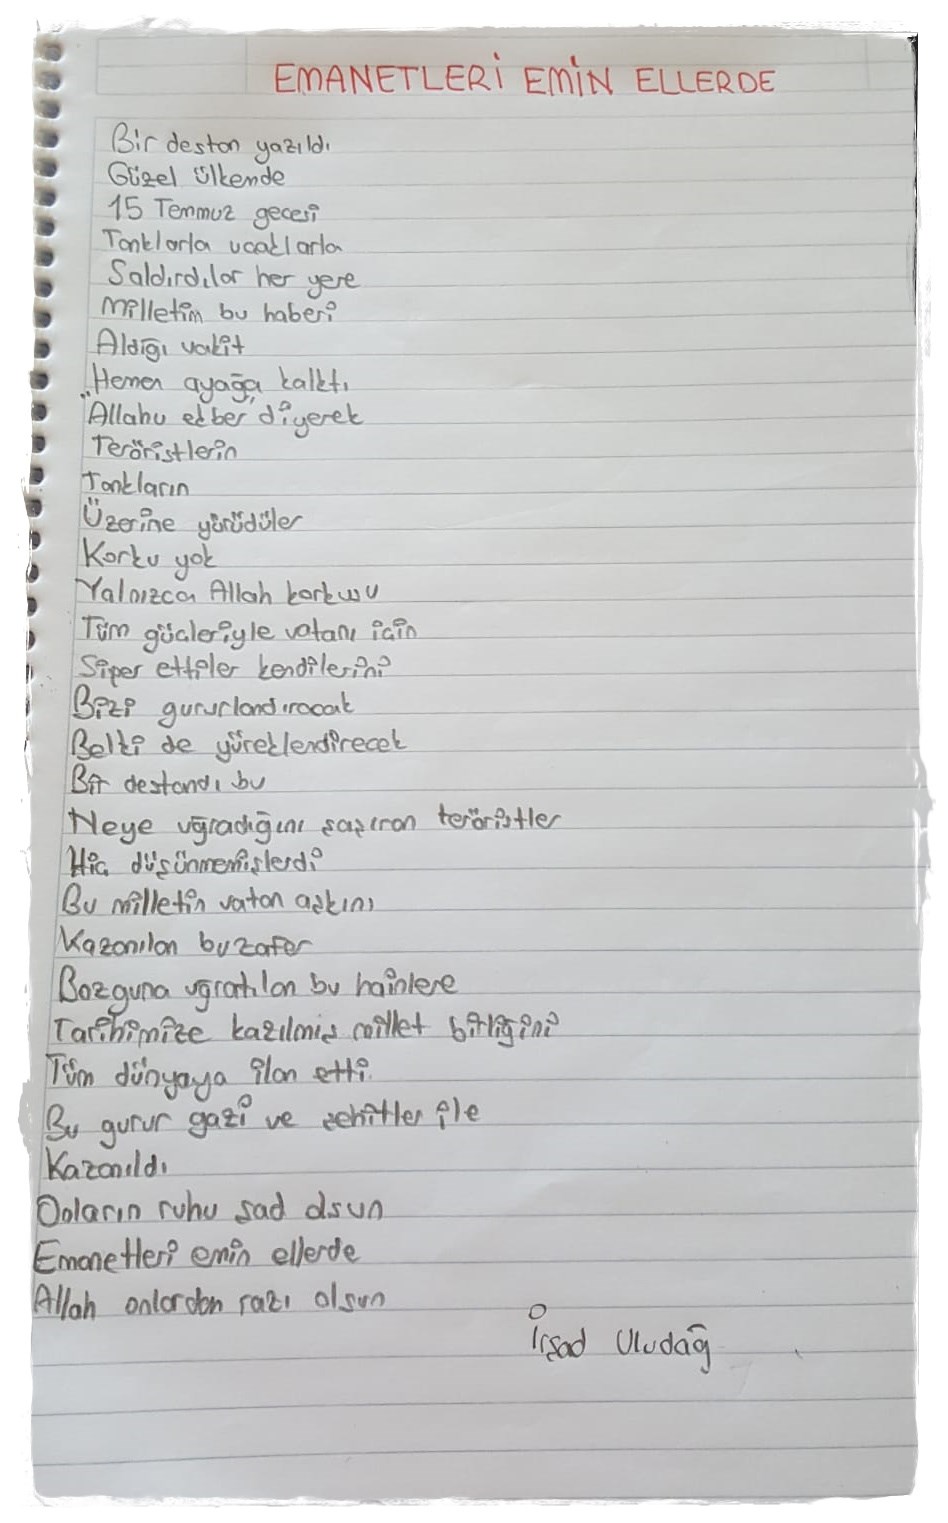 EMANETLERİ EMİN ELLERDE
Bir destan yazıldı
Güzel ülkemde
15 Temmuz gecesi
Tanklarla ucaklarla
Saldırdılar her yere
Milletim bu haberi
Aldığı vakit
Hemen ayağa kalktı
"Allahu ekber" diyerek
Teröristlerin
Tankların
Üzerine yürüdüler
Korku yok
Yalnızca Allah korkusu
Tüm gücleriyle vatanı icin
Siper ettiler kendilerini
Bizi gururlandıracak
Belki de yüreklendirecek
Bir destandı bu
Neye uğradığını şaşıran teröristler
Hic düşünmemişlerdi
Bu milletin vatan aşkını
Kazanılan bu zafer
Bozguna uğratılan bu hainlere
Tarihimize kazılmış millet birliğini
Tüm dünyaya ilan etti.
Bu gurur gazi ve şehitler ile
Kazanıldı
Onların ruhu şad olsun
Emanetleri emin ellerde
Allah onlardan razı olsun
İrşad Uludağ